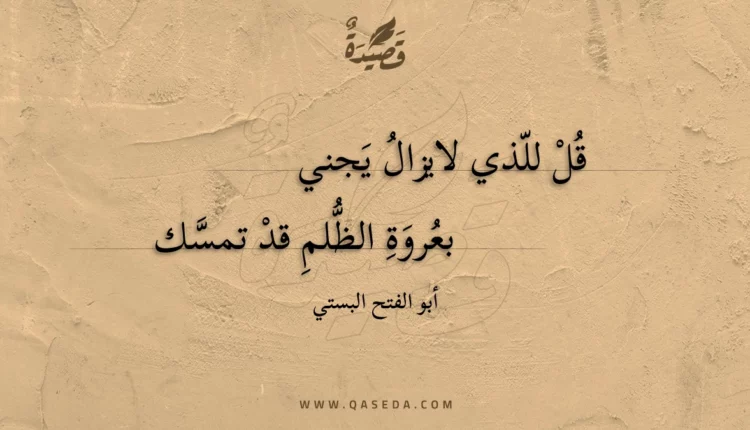 قَصِيْدَةٌ
قُلْ للّذي لايزالُ يَجني
بعُروَةِ الظُّلمِ قدْ تمسَّك
أبو الفتح البستي
WWW.QASEDA.COM